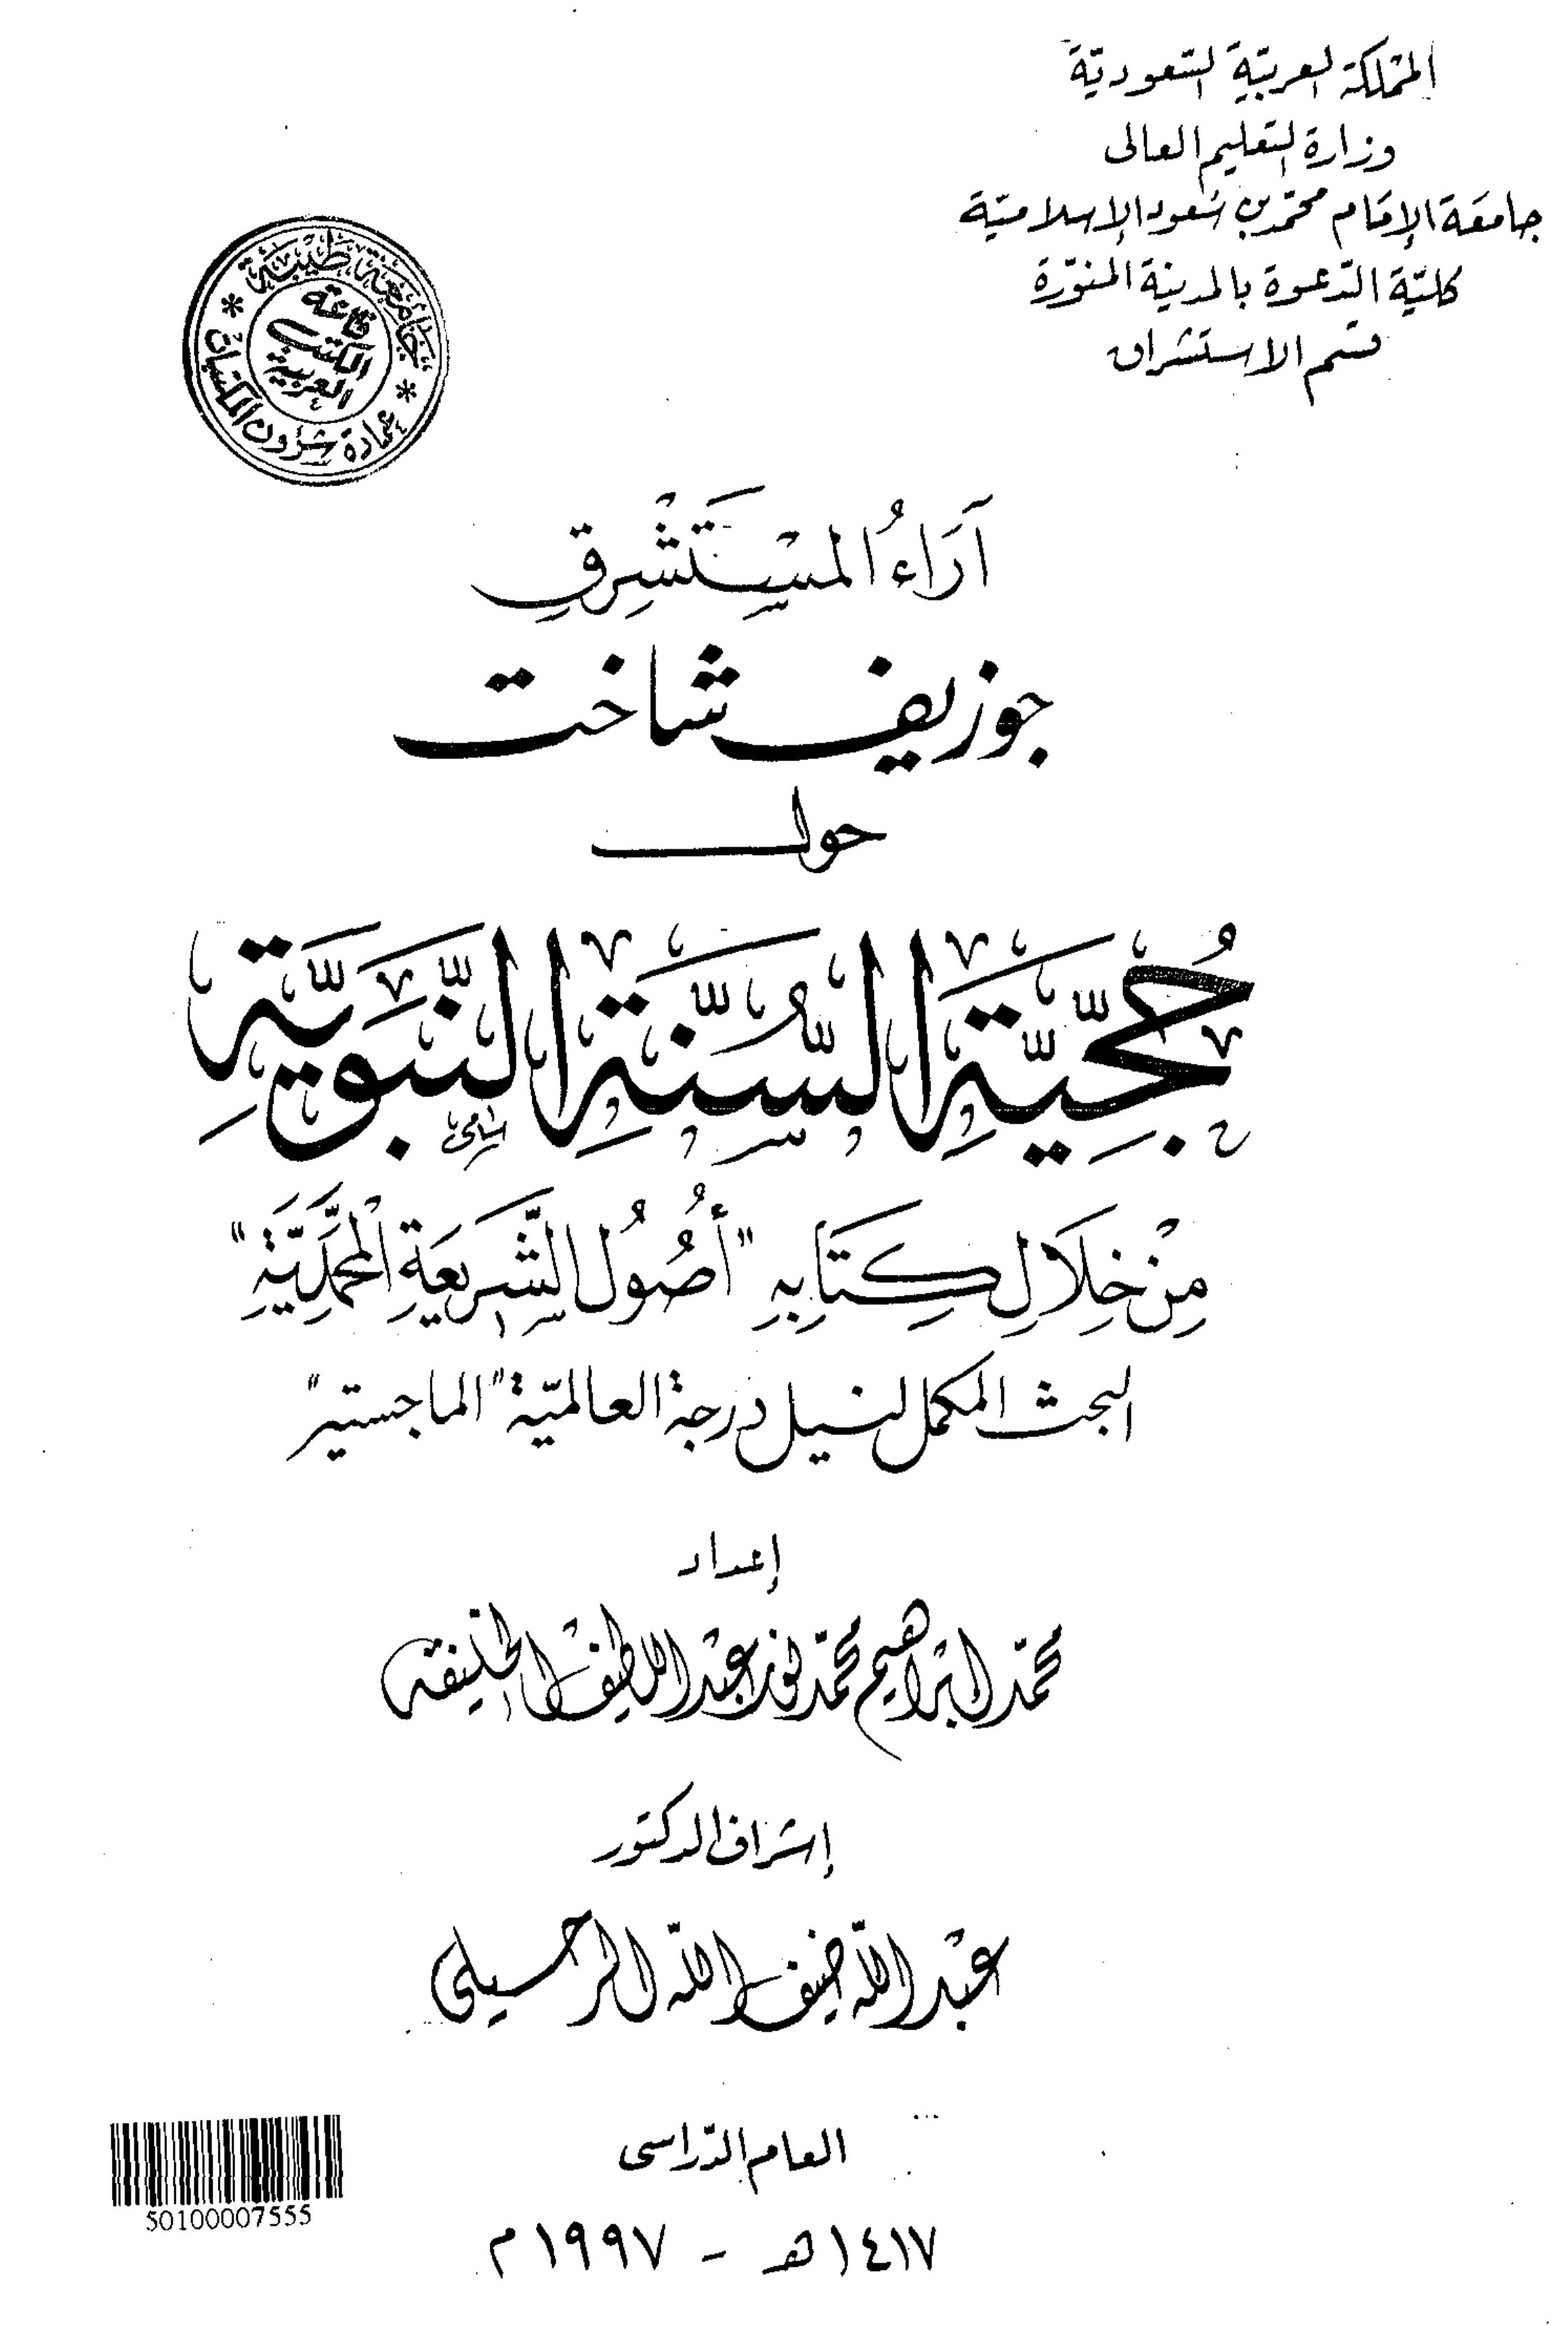 المملكة العربية السعودية
وزارة التعليم العالى
جامعة الإمام محمد بن سعود الإسلامية
كلية الدعوة بالمدينة المنورة
قسم الاستشراق
جامعة طيبة
عمادة شؤون المكتبات
قاعة
الكتب
العربية
آرَاءُ المسْتَشْرِقِ
جوزيف شاخت
حول
حُجِّيَّةِ السُّنَّةِ النَّبَوِيَّةِ
مِنْ خِلَالِ كِتَابِهِ "أُصُولُ الشَّرِيعَةِ الْمُحَمَّدِيَّةِ"
البحث المكمل لنيل درجة العالميّة "الماجستير"
إعداد
محمّد إبراهيم محمّد نور عبد اللطيف الخليفة
إشراف الدكتور
عبد اللّه ضيف اللّه الرحيلي
العام الدّراسى
١٤١٧هـ - ١٩٩٧م
50100007555